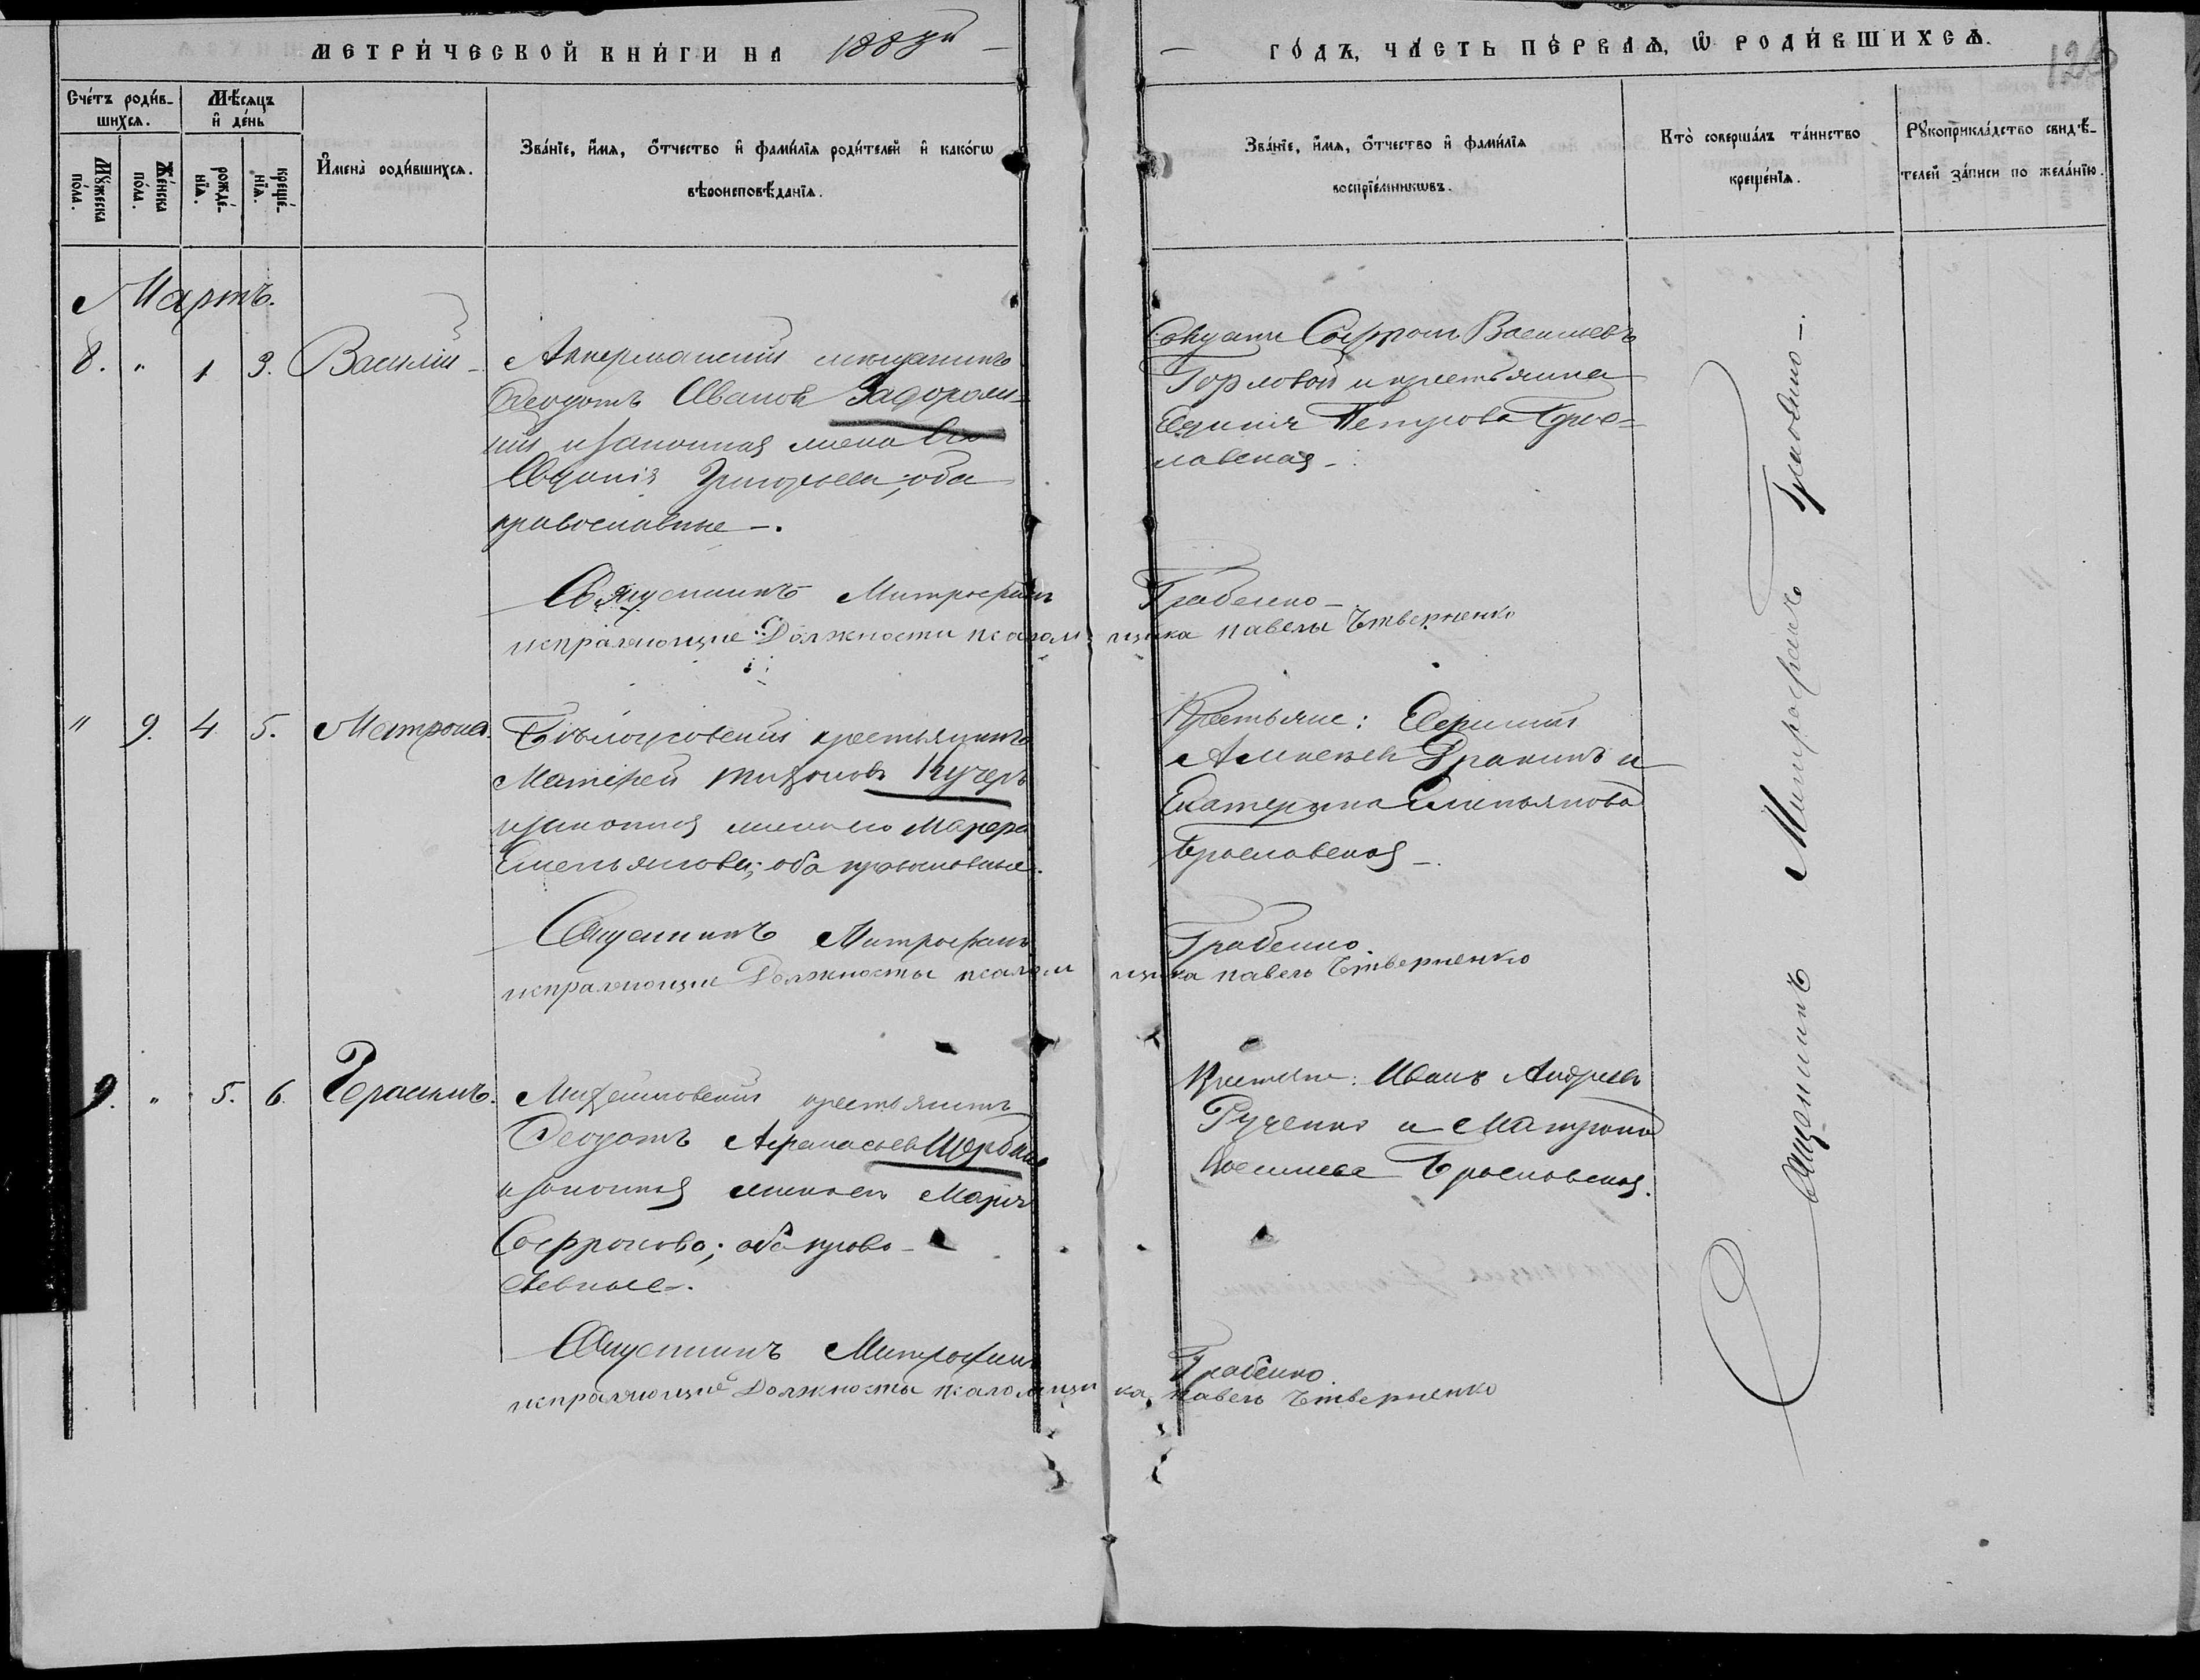 МЕТРИ́ЧЕСКОЙ КНИ́ГИ НА 1883й
ГО́ДЪ, ЧА́СТЬ ПЕ́РВАѦ, Ѿ РОДИ́ВШИХСѦ.
Сче́тъ роди́в-
шихсѧ.
Мѣ́сѧцъ
и де́нь
Мꙋ́жеска
по́ла.
Же́нска
по́ла.
рожде́-
нїѧ.
креще́-
нїѧ.
И҆мена̀ роди́вшихсѧ.
Зва́нїе, и҆́мѧ, ѻ҆́тчество и҆ фами́лїѧ роди́телей и҆ како́гѡ
вѣроисповѣ́данїѧ.
Зва́нїе, и҆́мѧ, ѻ҆́тчество и҆ фами́лїѧ
воспрїе́мникѡвъ.
Кто̀ соверша́лъ та́инство
креще́нїѧ.
Рꙋкоприкла́дство свидѣ́-
телей за́писи по жела́нїю.
Мартъ.
8. " 1 3. Василій
Аккерманскій мещанинъ
Ѳеодотъ Иванов Задорож-
ній и законная жена его
Евдокія Григорьева, оба
православные -.
Софрон Васильевъ
Горловой и крестьянка
Петрова Брос-
лавская -.
Священникъ Митрофанъ Грабенко -
исправляющие Должности псаломщика павелъ Четверненко
" 9. 4. 5. Матрона.
крестьянинъ
Матфей Тихонов Кучеръ
и законная жена его Марфа
Емельянова; оба православные.
Крестьяне:
Алексеев и
Екатерина Емельянова
Брославская -.
Священникъ Митрофанъ Грабенко.
исправляющие Должносты псаломщика павелъ Четверненко
9. " 5. 6. Герасимъ.
Михайловскій крестьянинъ
Ѳеодотъ Афанасьев Щербина
и законная жена его Марія
Софронова; оба право-
славные -.
Крестьяне: Иванъ Андреев
Рученко и Матрона
Васильева Брославская.
Священникъ Митрофанъ Грабенко.
исправляющие Должносты псаломщика, павелъ Четверненко
Священникъ Митрофанъ Грабенко -.